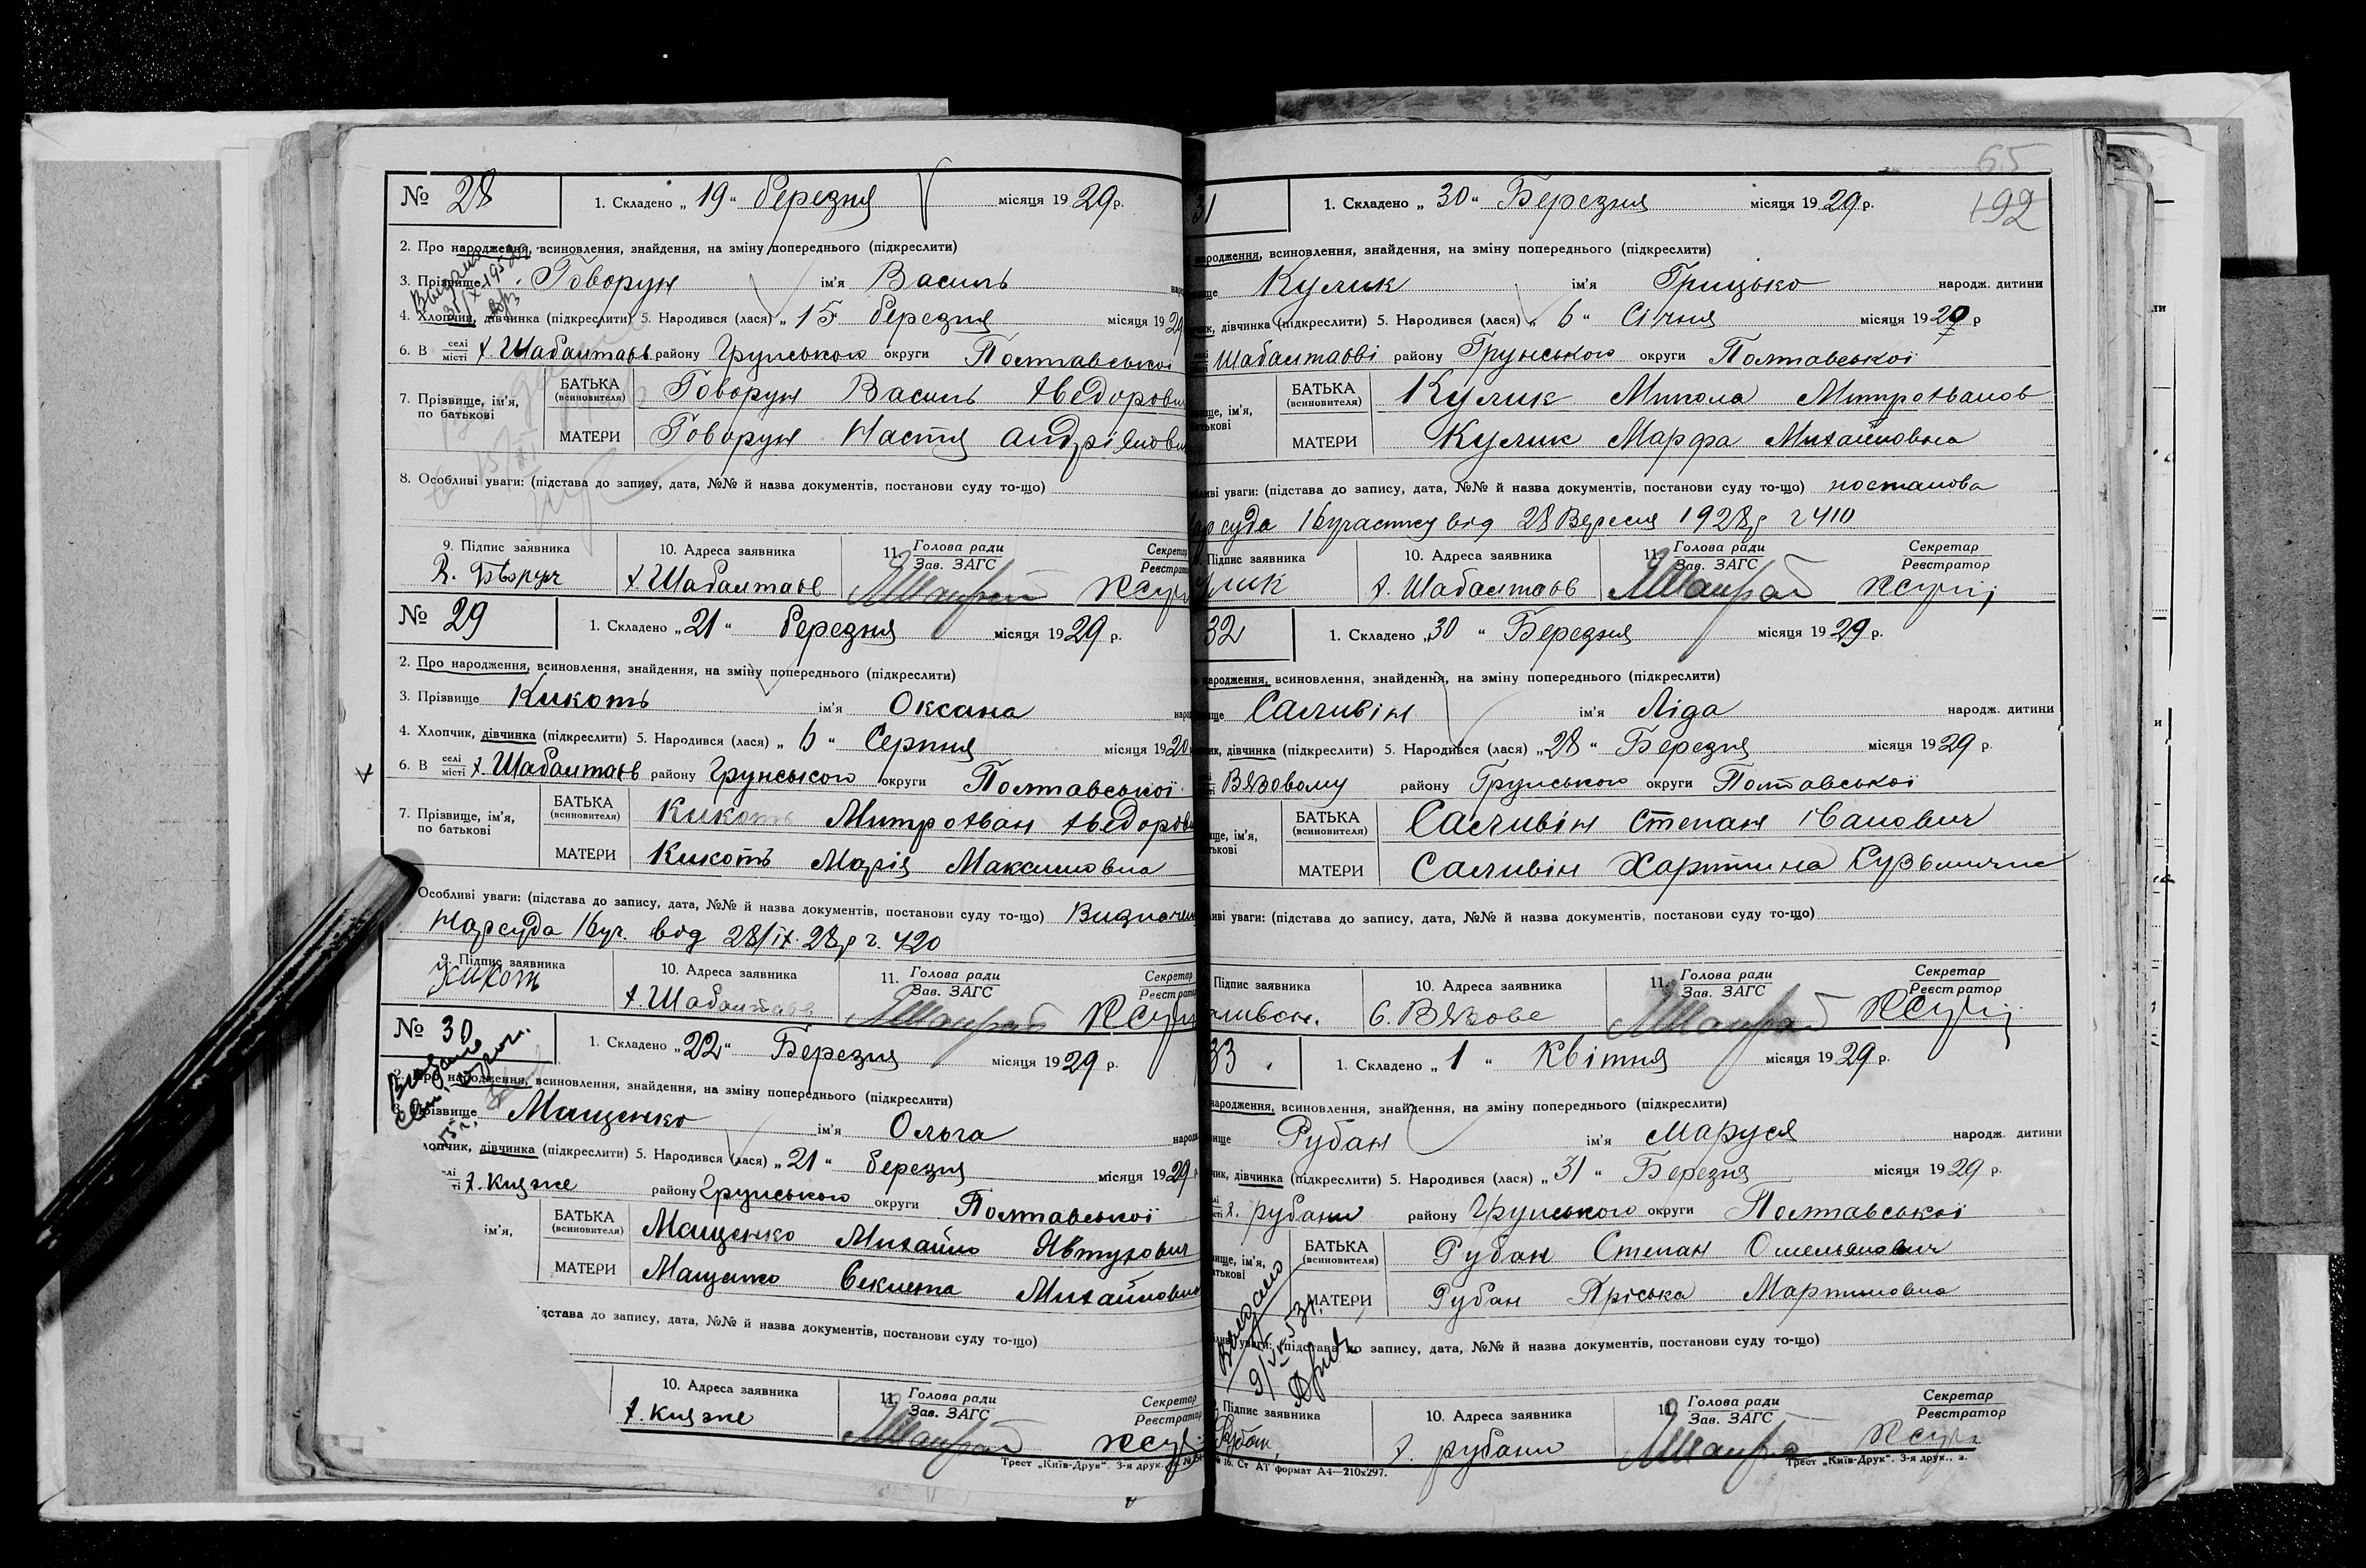 № 28
1. Складено „ 19 “ березня місяця 1929 р.
2. Про народження, всиновлення, знайдення, на зміну попереднього (підкреслити)
3. Прізвище Говорун ім'я Василь
4. Хлопчик, дівчинка (підкреслити) 5. Народився (лася) „ 15 березня місяця 1929
6. В селі місті х. Шабалтаїв району Грунського округи Полтавської
7. Прізвище, ім'я, по батькові
БАТЬКА (всиновителя) Говорун Василь Хведорови
МАТЕРИ Говорун Настя Андріяновн
8. Особливі уваги: (підстава до запису, дата, №№ й назва документів, постанови суду то-що)
9. Підпис заявника 10. Адреса заявника 11. Голова ради Зав. ЗАГС Секретар Реєстратор
х. Шабалтаїв
№ 29
1. Складено „ 21 “ березня місяця 1929 р.
2. Про народження, всиновлення, знайдення, на зміну попереднього (підкреслити)
3. Прізвище Кикоть ім'я Оксана
4. Хлопчик, дівчинка (підкреслити) 5. Народився (лася) „ 6 “ Серпня місяця 1920
6. В селі місті х. Шабалтаїв району Грунського округи Полтавської
7. Прізвище, ім'я, по батькові
БАТЬКА (всиновителя) Кикоть Митрохван Хведорови
МАТЕРИ Кикоть Марія Максимовна
Особливі уваги: (підстава до запису, дата, №№ й назва документів, постанови суду то-що) Визначен
Нарсуда 16 уч. від 28/IX 28 р ч. 420
9. Підпис заявника 10. Адреса заявника 11. Голова ради Зав. ЗАГС Секретар Реєстратор
Кикоть х. Шабалтаїв
№ 30
1. Складено „ 22 “ Березня місяця 1929 р.
народження, всиновлення, знайдення, на зміну попереднього (підкреслити)
Прізвище Мащенко ім'я Ольга
хлопчик, дівчинка (підкреслити) 5. Народився (лася) „ 21 “ березня місяця 1929 р
х. Княже району Грунського округи Полтавської
ім'я,
БАТЬКА (всиновителя) Мащенко Михайло Явтухович
МАТЕРИ Мащенко Векшета Михайловна
підстава до запису, дата, №№ й назва документів, постанови суду то-що)
10. Адреса заявника 11. Голова ради Зав. ЗАГС Секретар Реєстратор
х. Княже
Трест „Київ-Друк“. 3-я друк.
65
192
31
1. Складено „ 30 “ Березня місяця 1929 р.
народження, всиновлення, знайдення, на зміну попереднього (підкреслити)
Кулик ім'я Грицько народж. дитини
дівчинка (підкреслити) 5. Народився (лася) „ 6 “ Січня місяця 1920 р
Шабалтаєві району Грунського округи Полтавської
БАТЬКА (всиновителя) Кулик Микола Митрохванов
МАТЕРИ Кулик Марфа Михайловна
уваги: (підстава до запису, дата, №№ й назва документів, постанови суду то-що) постанова
суда 16 участку від 28 Вересня 1928 р ч 410
Підпис заявника 10. Адреса заявника 11. Голова ради Зав. ЗАГС Секретар Реєстратор
х. Шабалтаїв
32
1. Складено „ 30 “ Березня місяця 1929 р.
народження, всиновлення, знайдення, на зміну попереднього (підкреслити)
Саливін ім'я Ліда народж. дитини
дівчинка (підкреслити) 5. Народився (лася) „ 28 “ Березня місяця 1929 р.
Вязовому району Грунського округи Полтавської
БАТЬКА (всиновителя) Саливін Степан Іванович
МАТЕРИ Саливін Хартина Кузьмична
уваги: (підстава до запису, дата, №№ й назва документів, постанови суду то-що)
Підпис заявника 10. Адреса заявника 11. Голова ради Зав. ЗАГС Секретар Реєстратор
с. Вязове
33
1. Складено „ 1 “ Квітня місяця 1929 р.
народження, всиновлення, знайдення, на зміну попереднього (підкреслити)
Рубан ім'я Маруся народж. дитини
дівчинка (підкреслити) 5. Народився (лася) „ 31 “ Березня місяця 1929 р.
х. рубани району Грунського округи Полтавської
БАТЬКА (всиновителя) Рубан Степан Омельянович
МАТЕРИ Рубан Пріська Мартиновна
уваги: (підстава до запису, дата, №№ й назва документів, постанови суду то-що)
Підпис заявника 10. Адреса заявника 11. Голова ради Зав. ЗАГС Секретар Реєстратор
Рубан х. рубани
№ 16. Ст АТ формат А4—210х297. Трест „Київ-Друк“. 3-я друк., з.